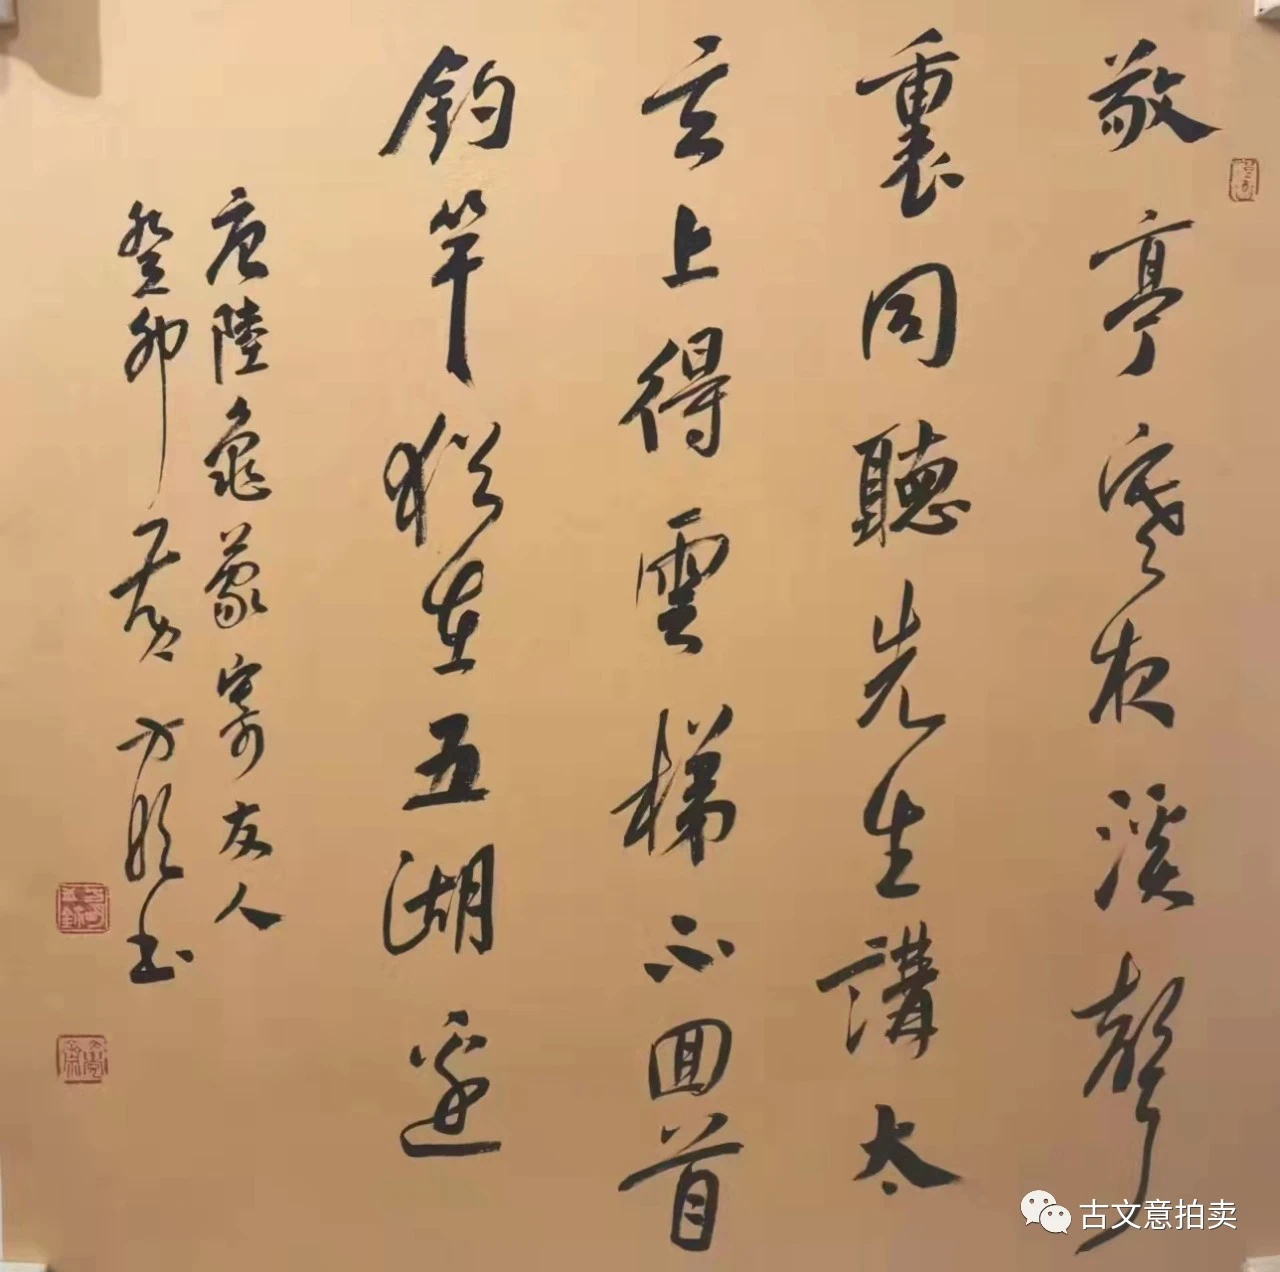 敬亭寒夜溪聲
裏同聽先生講太
玄上得雲梯不回首
釣竿猶在五湖邊
唐陸龜蒙寄友人
癸卯夏方明書
古文意拍卖